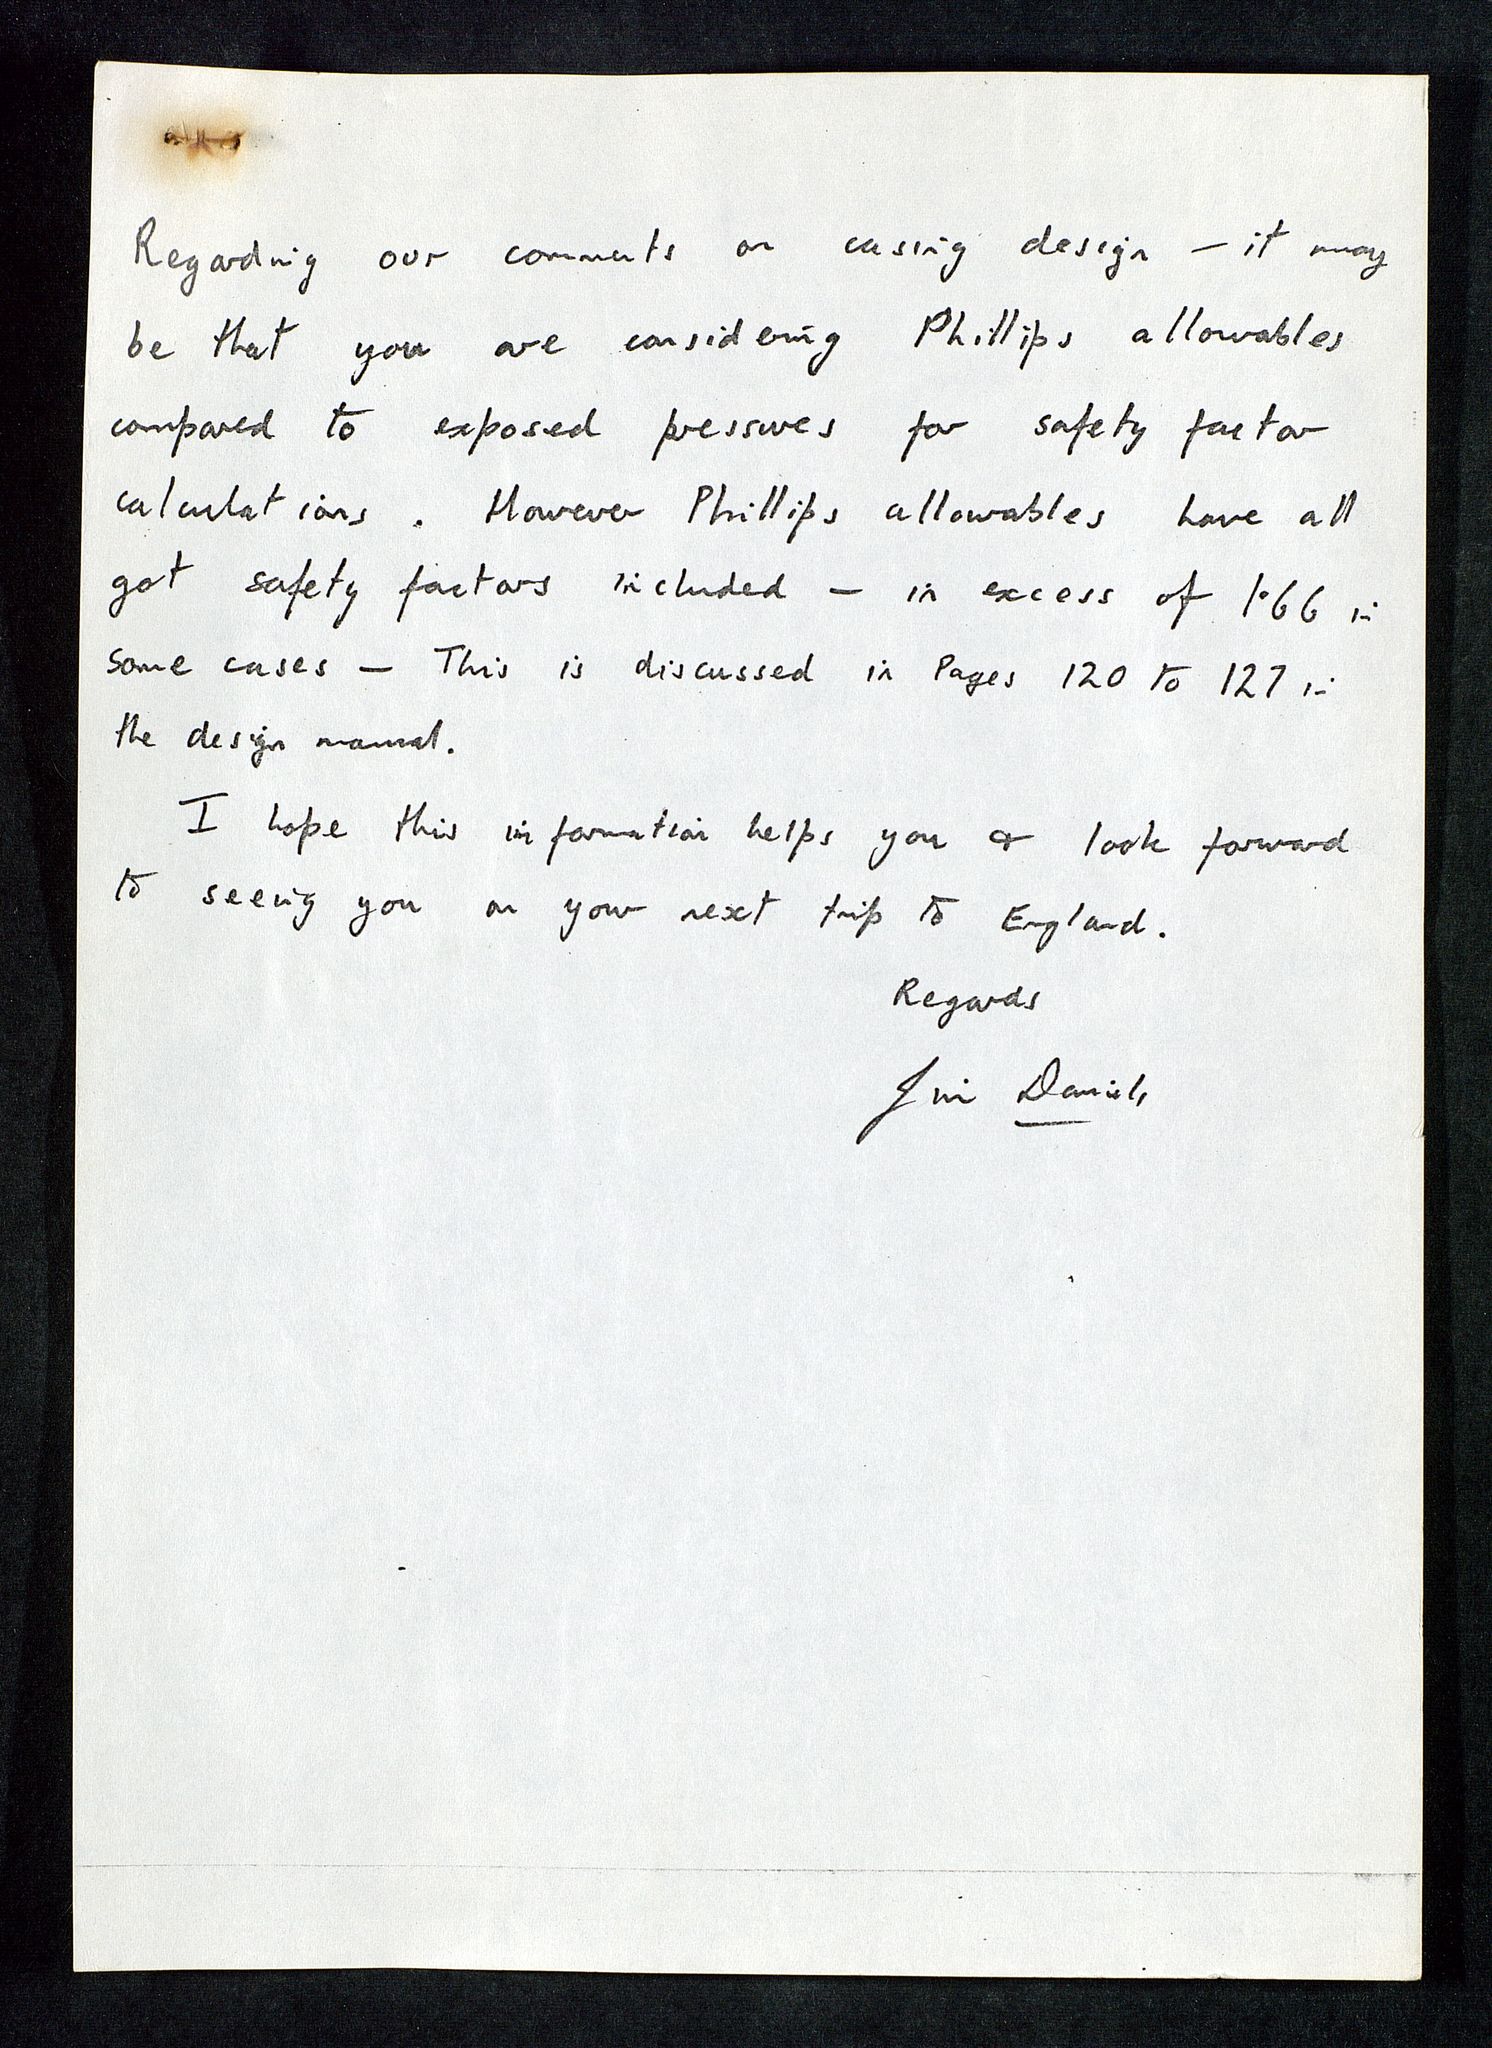 Regarding our comments on casing design - it may
be that you are considering Phillips allowables
compared to exposed pressures for safety factor
calculations. However Phillips allowables have all
got safety factors included - in excess of 1.66 in
some cases - This is discussed in Pages 120 to 127 in
the design manual.
I hope this information helps you & look forward
to seeing you on your next trip to England.
Regards
Jim Daniels